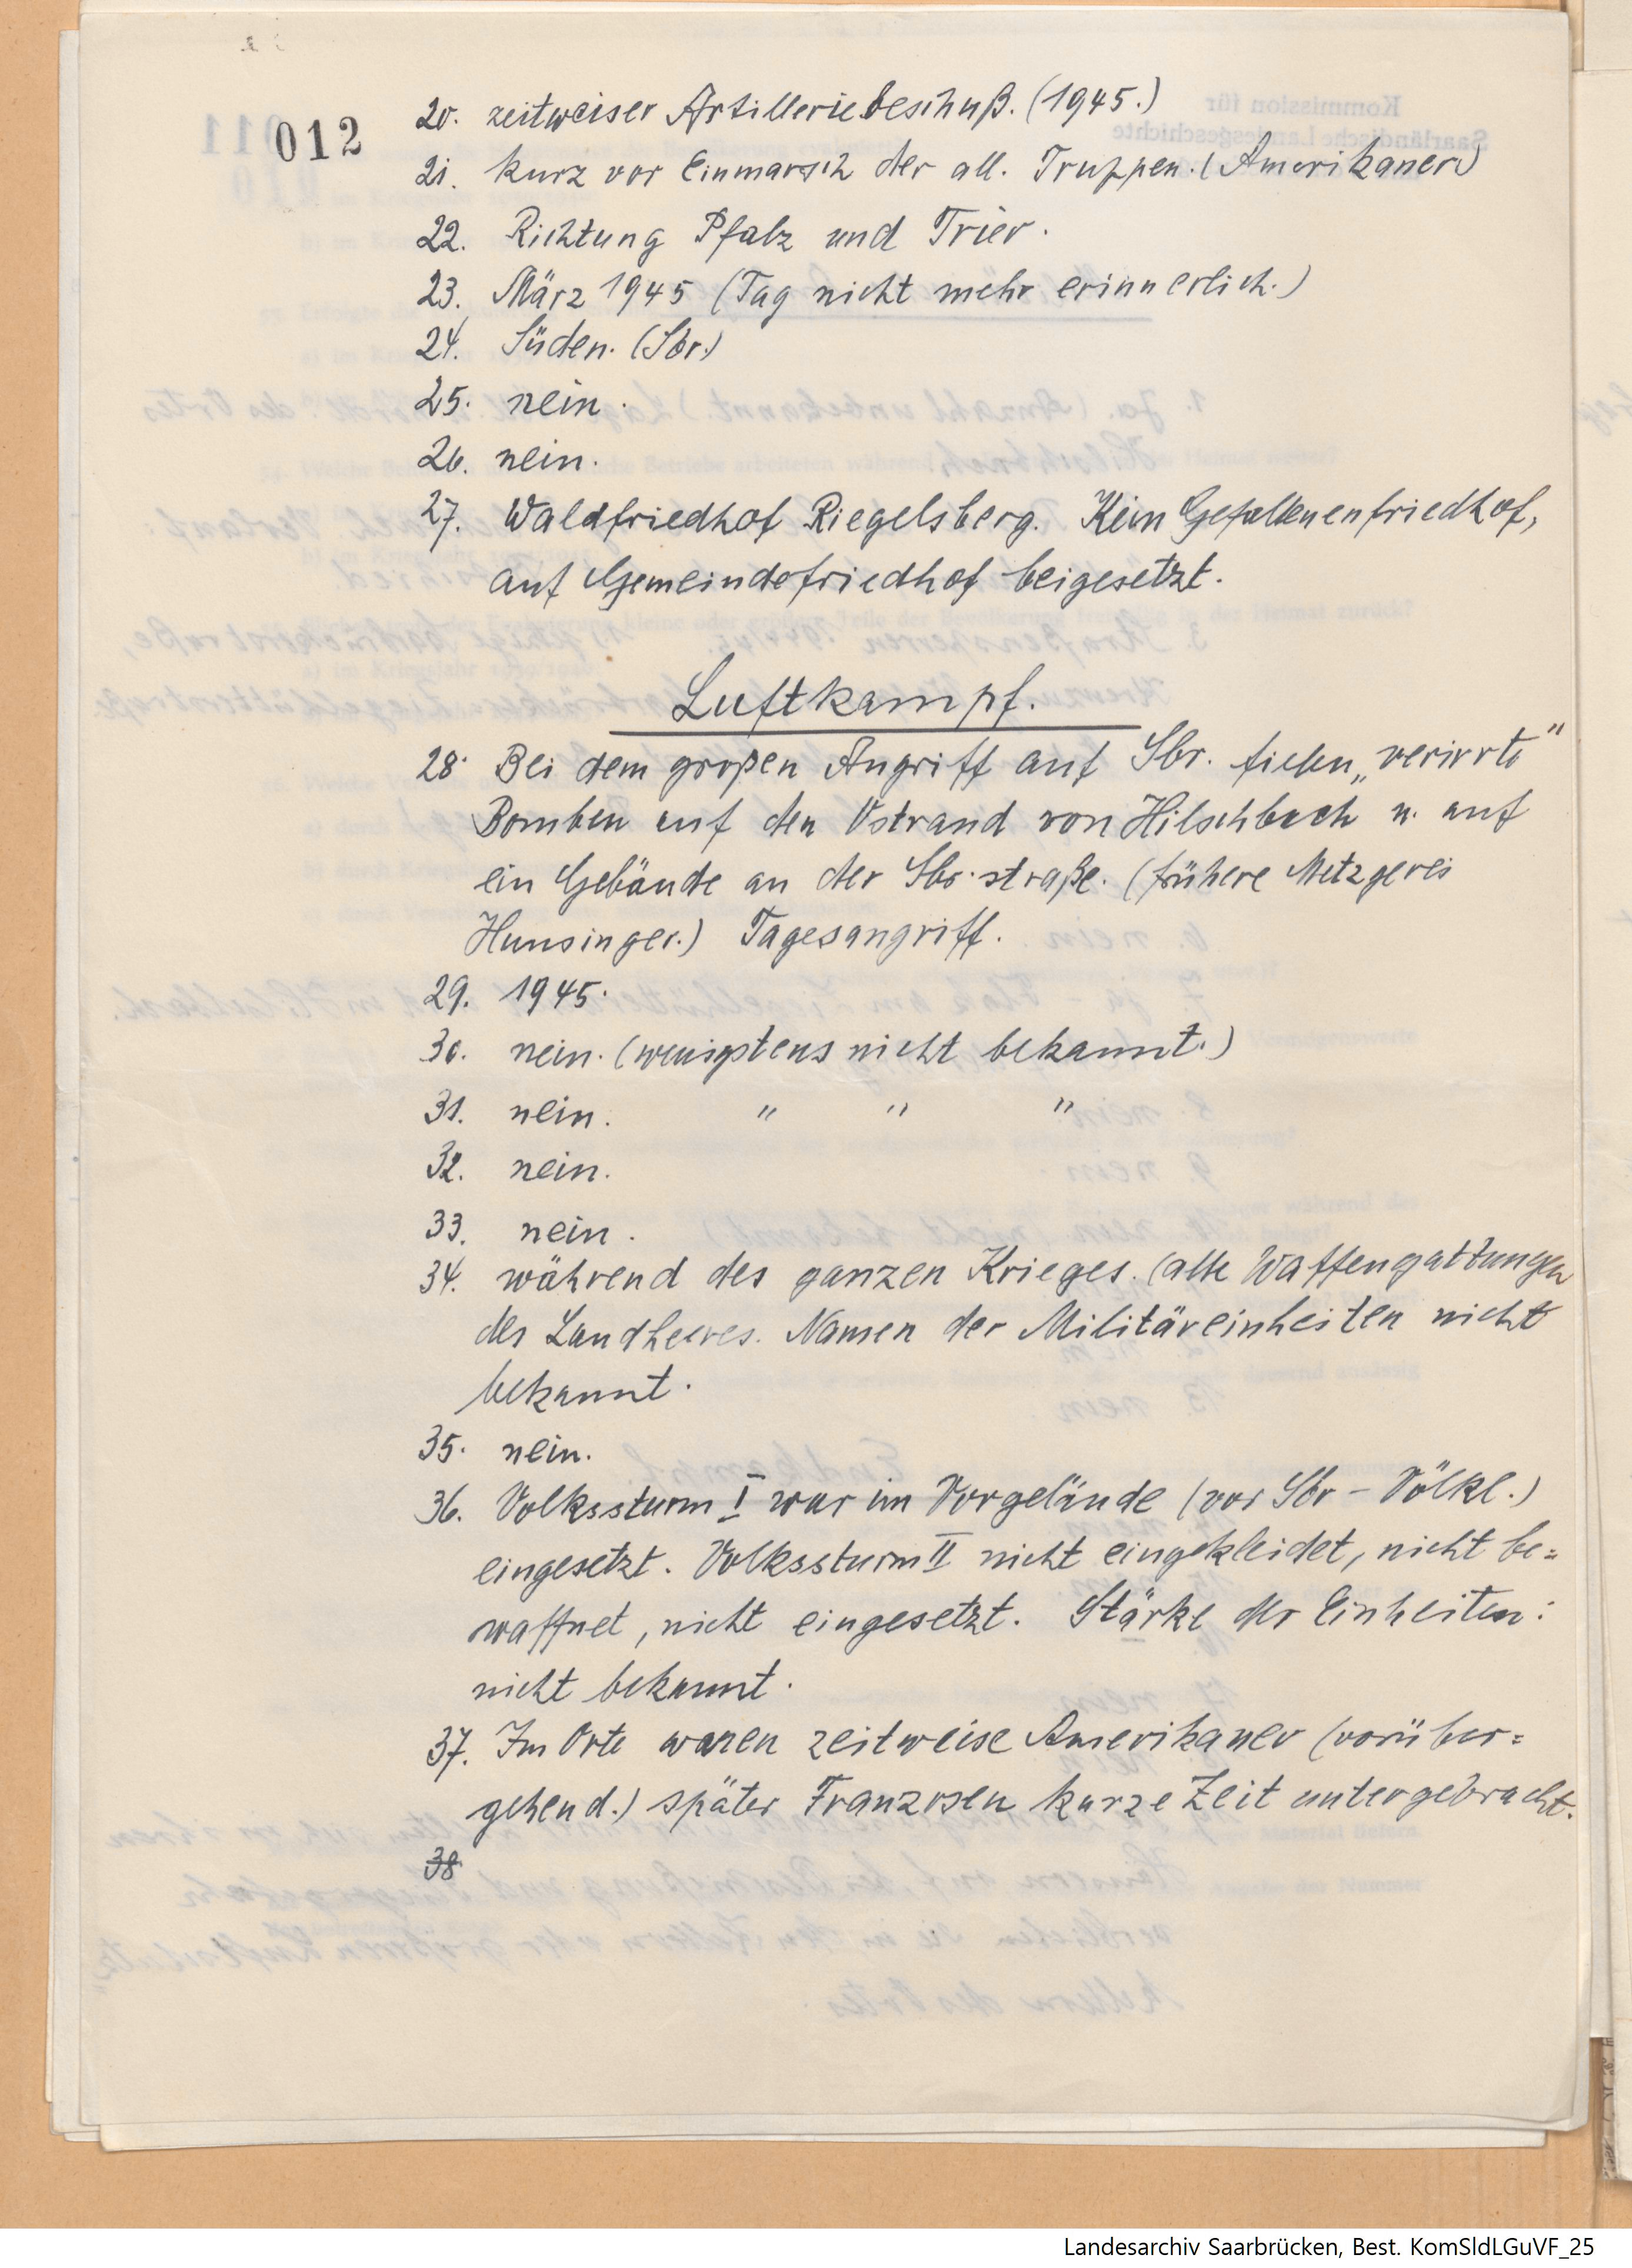 012
20. zeitweiser Artilleriebeschuß. (1945.)
21. kurz vor Einmarsch der all. Truppen. (Amerikaner)
22. Richtung Pfalz und Trier.
23. März 1945 (Tag nicht mehr erinnerlich.)
24. Süden. (Sbr.)
25. nein.
26. nein.
27. Waldfriedhof Riegelsberg. Kein Gefallenenfriedhof,
auf Gemeindefriedhof beigesetzt.
Luftkampf.
28. Bei dem großen Angriff auf Sbr. fielen „verirrte"
Bomben auf den Ostrand von Hilschbach u. auf
ein Gebäude an der Sbr. straße. (frühere Metzgerei
Hunsinger.) Tagesangriff.
29. 1945.
30. nein. (wenigstens nicht bekannt.)
31. nein. " " "
32. nein.
33. nein.
34. während des ganzen Krieges. (alle Waffengattungen
des Landheeres. Namen der Militäreinheiten nicht
bekannt.
35. nein.
36. Volkssturm I war im Vorgelände (vor Sbr – Völkl.)
eingesetzt. Volkssturm II nicht eingekleidet, nicht be=
waffnet, nicht eingesetzt. Stärke der Einheiten:
nicht bekannt.
37. Im Orte waren zeitweise Amerikaner (vorüber=
gehend.) später Franzosen kurze Zeit untergebracht.
38
Landesarchiv Saarbrücken, Best. KomSldLGuVF_25